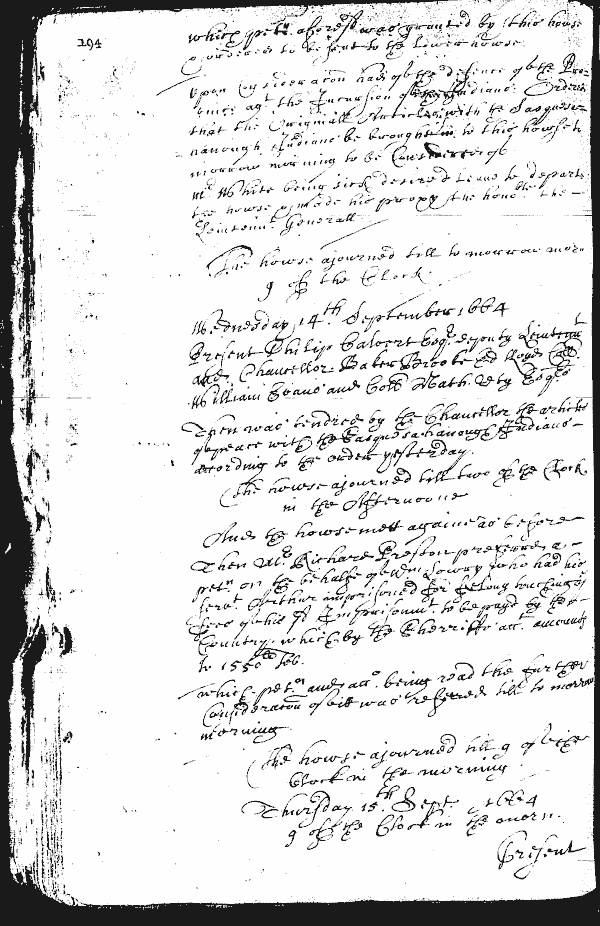 194
which petn aforesd was granted by this house
& ordered to be sent to the Lower howse
Upon Consideracon had of the defence of the Pro-
vince agt the Incursion of the Indians Ordered
that the Originall Articles with the Sasquesa-
hanough Indians be brought in to this howse to
morrow morning to be Considered of
Mr White being sick desired leave to depart
the howse & made his proxy the honble the
Leiutennt Generall
The howse ajourned till to morrow morn
9 of the Clock
Wednesday 14th September 1664
Present Philip Calvert Esqr deputy Leiutennt
and Chancellor Baker Brooke Ed Lloyd
William Evans and Coll
Then was tendred by the Chancellor the articles
of peace with the Sasquesahanough Indians
according to the order yesterday
The howse ajourned till two of the Clock
in the Afternoone
And the howse mett againe as before
Then Mr Richard Preston preferred a
petn on the behalfe of Wm Lowry who had his
servt Arthur imprisoned for felony touching
fees of his sd Imprisonmt to be payd by the
Country which by the Sherriffs acct amounts
to 1550 tob.
which petn and acco being read the further
Consideracon of itt was referred till to morrow
morning
The howse ajourned till 9 of the
Clock in the morning
Thursday 15th Sept. 1664
9 of the Clock in the morn.
Present